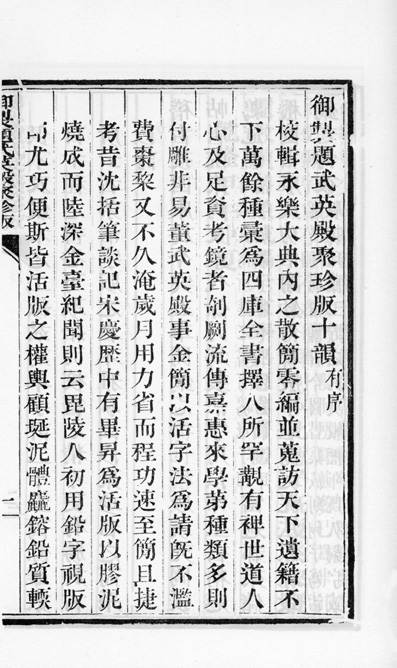 御製題武英殿聚珍版十韻有序
校輯永樂大典內之散簡零編並蒐訪天下遺籍不
下萬餘種彚爲四庫全書擇人所罕覯有裨世道人
心及足資考鏡者剞劂流傳嘉惠來學第種類多則
付雕非易董武英殿事金簡以活字法爲請旣不濫
費棗棃又不久淹歲月用力省而程功速至簡且捷
考昔沈括筆談記宋慶歷中有畢昇爲活版以膠泥
燒成而陸深金臺紀聞則云毘陵人初用鉛字視版
印尤巧便斯皆活版之權輿顧埏泥體麤鎔鉛質輭
御製題武英殿聚珍版
一